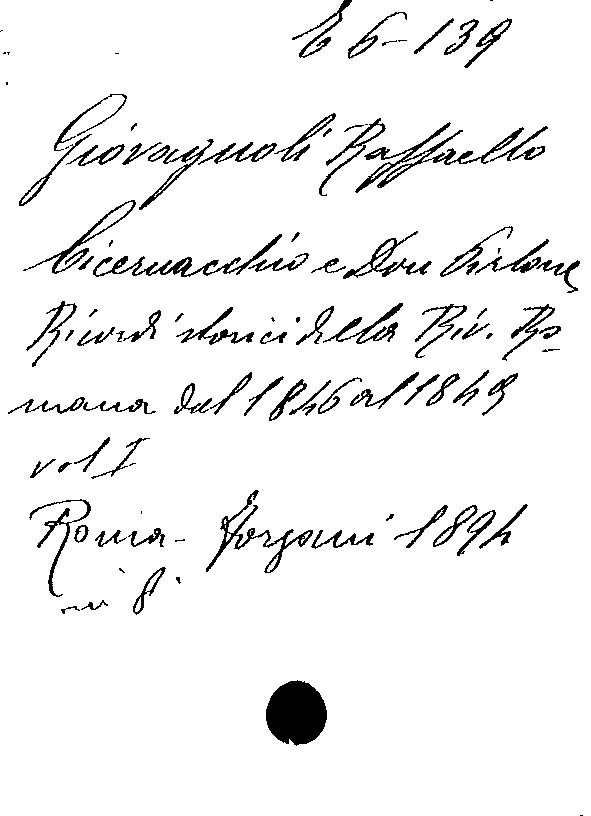 E 6-139
Giovagnoli Raffaello
Ciceruacchio e Don Pirlone
Ricordi storici della Riv. Ro-
mana dal 1846 al 1849
vol I
Roma - Forzani 1894
in 8°